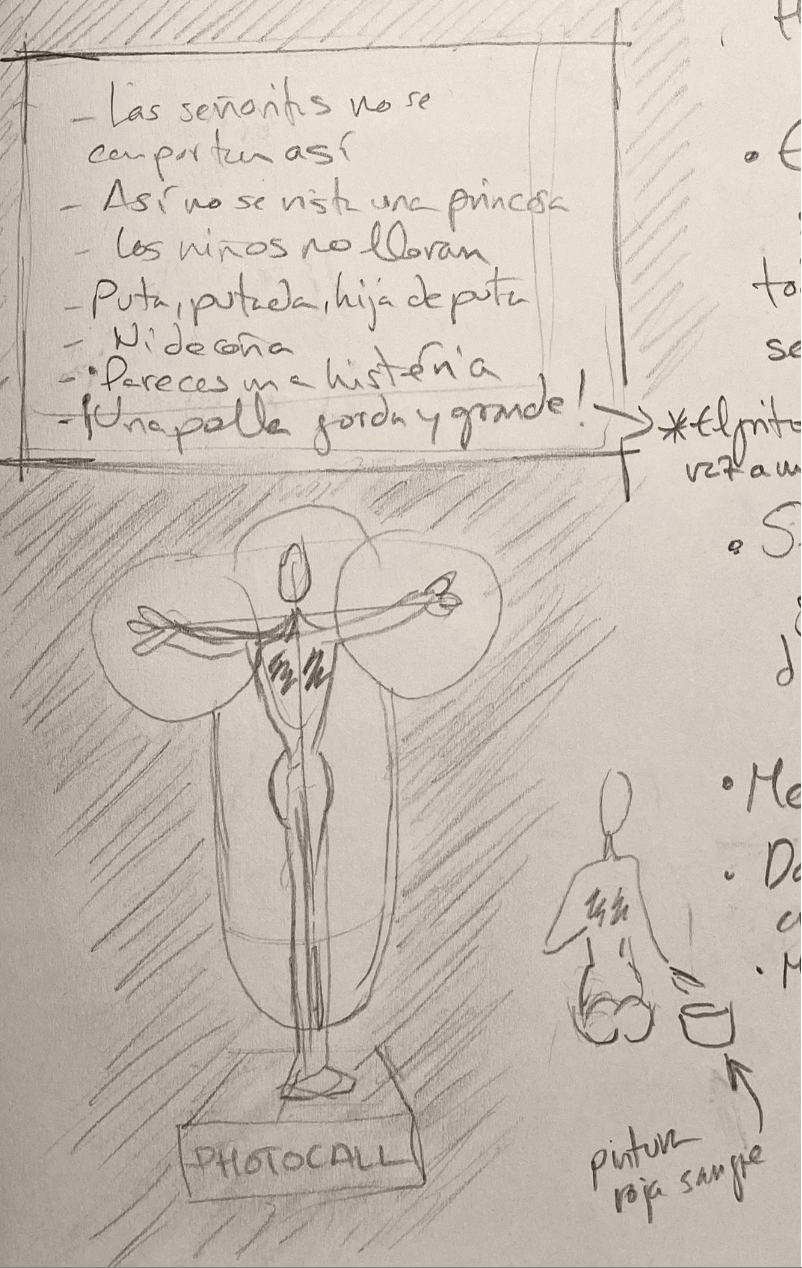 - Las señoritas no se
comportan así
- Así no se viste una princesa
- Los niños no lloran
- Puta, putada, hija de puta
- Ni de coña
- Pareces una histérica
- ¡Una polla gorda y grande!
* El grito
vez a un
• E
to
se
• S
d
• Me
• Do
• M
PHOTOCALL
pintura
roja sangre